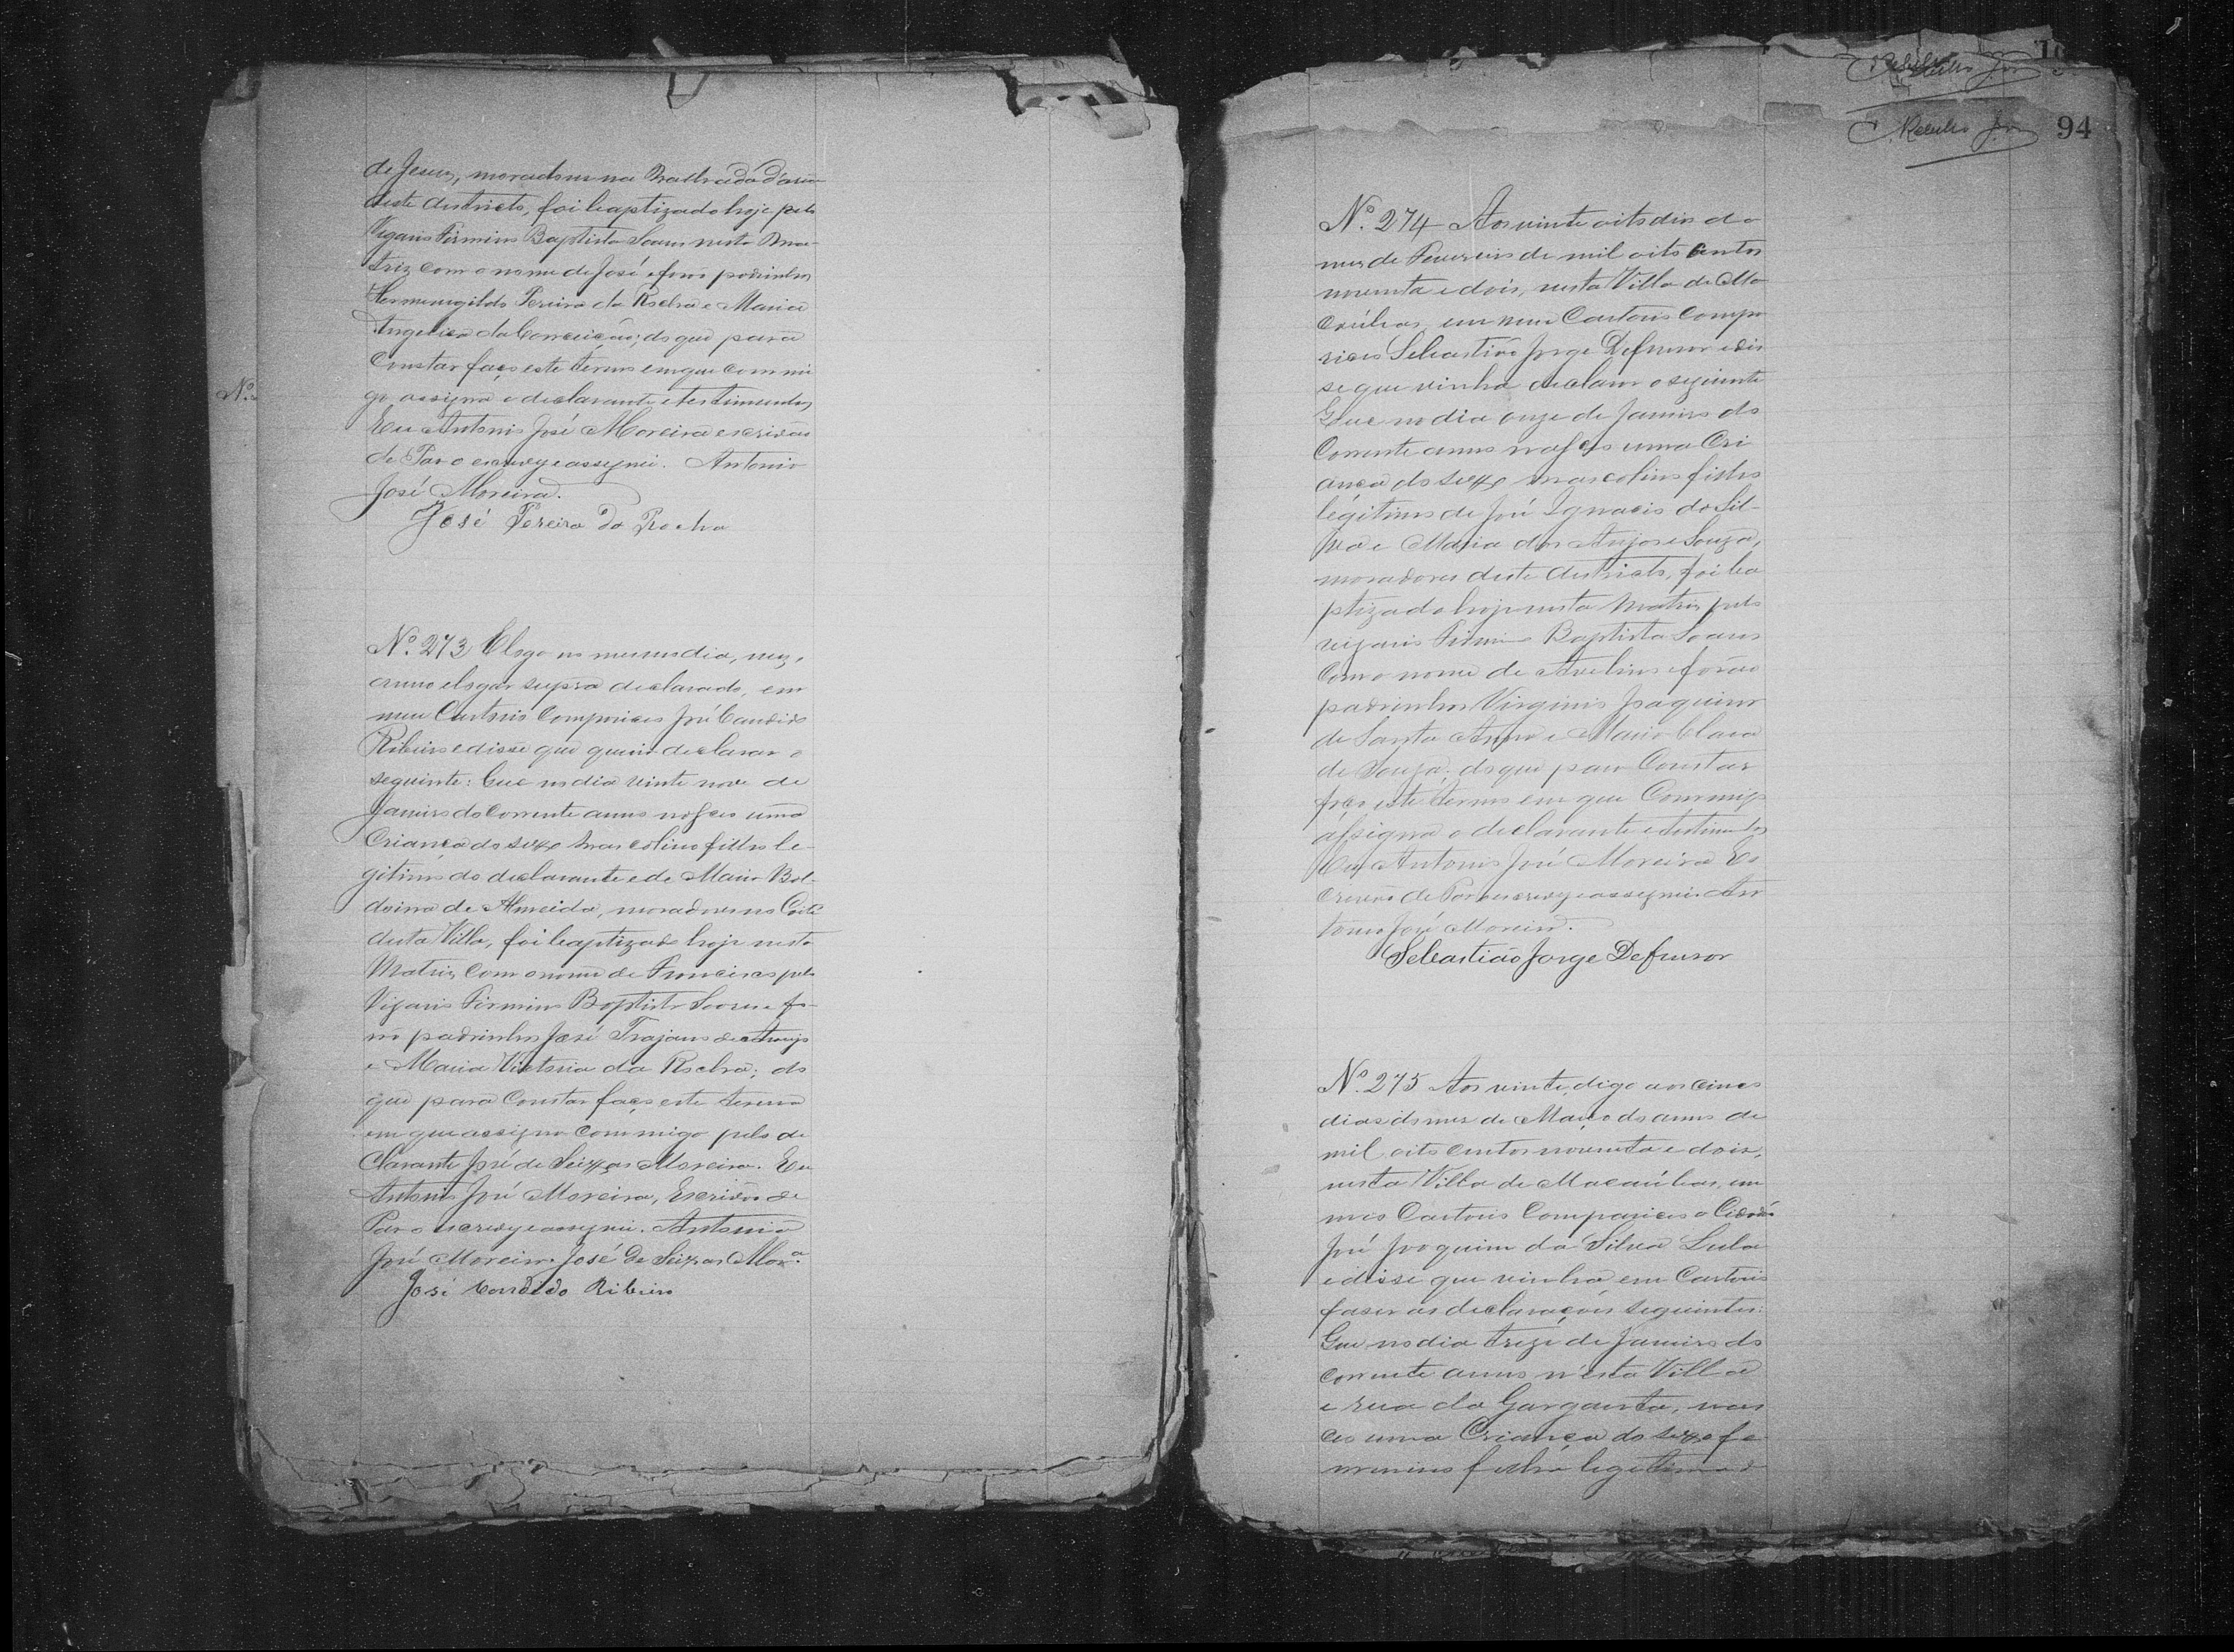 de Jesus, moradores na Malhada d'area
deste districto, foi baptizado hoje pelo
Vigario Firmino Baptista Soares nesta Ma-
triz com o nome de José e foro padrinhos
Hermenegildo Pereira da Rocha e Maria
Angelica da Conceição; do que para
Constar faço este termo em que com mi
go assigna o declarante e testimunhas
Eu Antonio José Moreira escrivão
de Paz o escrevy e assignei. Antonio
José Moreira.
José Pereira da Rocha
Nº 273 E logo no mesmo dia, mez,
anno e logar supra declarado, em
meu Cartorio Compareceo José Candido
Ribeiro e disse que queria declarar o
seguinte: Que no dia vinte nove de
Janeiro do Corrente anno nasceo uma
Criança do sexo mascolino filho le-
gitimo do declarante e de Maria Bal-
doina de Almeida, moradores no Coité
desta Villa, foi baptizado hoje nesta
Matriz com o nome de Francisco pelo
Vigario Firmino Baptista Soares e fo-
rão padrinhos José Trajano de Araujo
e Maria Victoria da Rocha; do
que para Constar faço este termo
em que assigna Commigo pelo de
clarante José de Seixas Moreira. Eu
Antonio José Moreira, Escrivão de
Paz o escrevy e assignei. Antonio
José Moreira. José de Seixas Mora.
José Candido Ribeiro
Nº
94
Nº 274 Aos vinte oito dias do
mes de Fevereiro de mil oito centos
noventa e dois, nesta Villa de Ma
caúbas, em meu Cartorio Compa
receo Sebastião Jorge Defensor e dis
se que vinha declarar o seguinte
Que no dia onze de Janeiro do
Corrente anno nasceo uma Cri
ança do sexo mascolino filho
légitimo de José Ignacio da Sil-
va e Maria dos Anjos e Souza,
moradores deste districto, foi ba
ptizado hoje nesta Matriz pelo
vigario Firmino Baptista Soares
Com o nome de Avelino e forão
padrinhos Virginio Joaquim
de Santa Anna e Maria Clara
de Souza; do que para Constar
faço este termo em que Commigo
assigna o declarante e testimunhas
Eu Antonio José Moreira Es
crivão de Paz o escrevy e assignei. An
tonio José Moreira.
Sebastião Jorge Defensor
Nº 275 Aos vinte, digo aos cinco
dias do mes de Março do anno de
mil oito centos noventa e dois,
nesta Villa de Macaúbas, em
meo Cartorio Compareceo o Cidadão
José Joaquim da Silva Lula
e disse que vinha em Cartorio
faser as declarações seguintes:
Que no dia treze de Janeiro do
Corrente anno n'esta Villa
e rua da Garganta, nas
ceo uma Criança do sexo fe
menino filha legitima d